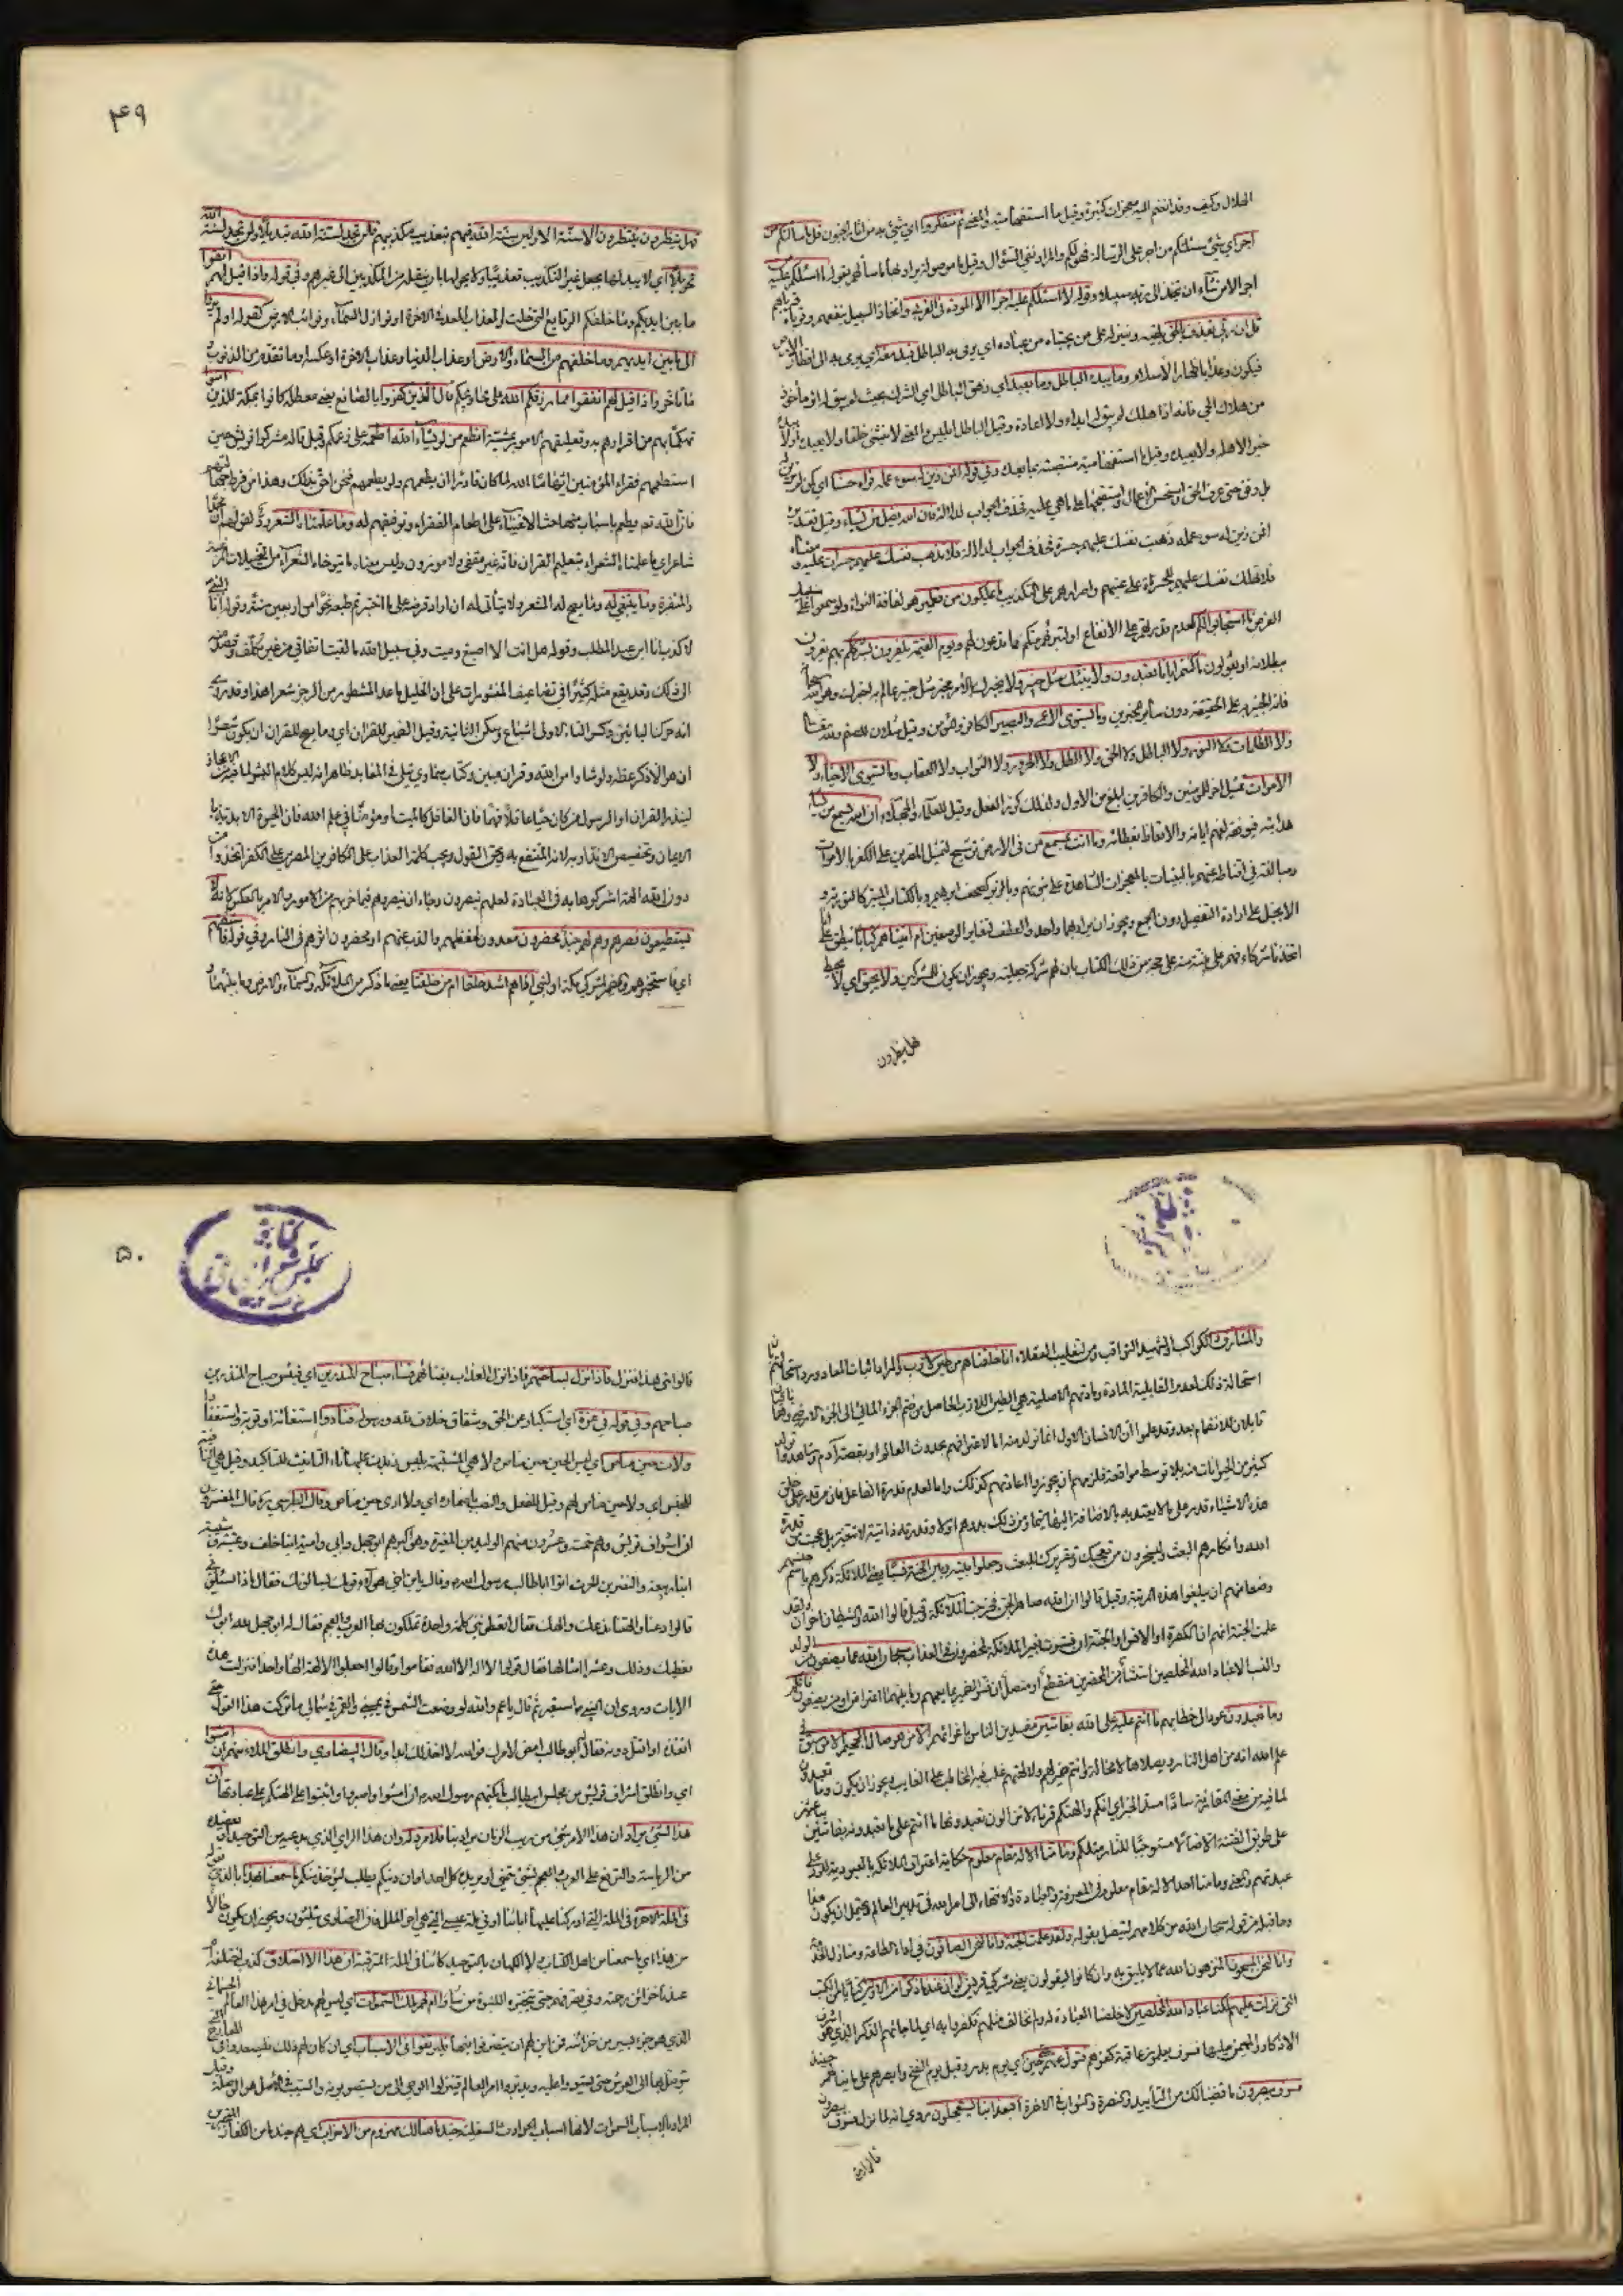 الحلال وكيف وقد انضم اليه معجزات كثيرة وقيل ما استفهامية والمعنى ثم تتفكروا اي شيء به من اثار الجنون قل ما سألتكم من
اجر اي شيء سئلتكم من اجر على الرسالة فهو لكم والمراد نفي السؤال وقيل ما موصولة يراد بها ما سألهم بقوله ما اسئلكم عليه
اجر الا من شاء ان يتخذ الى ربه سبيلا وقوله لا اسئلكم عليه اجرا الا المودة في القربى واتخاذ السبيل ينفعهم وقرباه قرباهم
قل ان ربي يقذف بالحق يلقيه وينزله على من يجتبيه من عباده او يرمي به الباطل فيدمغه او يرمي به الى اقطار الارض
فيكون وعدا باظهار الاسلام وما يبدئ الباطل وما يعيد اي زهق الباطل اي الشرك بحيث لم يبق له اثر مأخوذ
من هلاك الحي فانه اذا هلك لم يبق له ابداء ولا اعادة وقيل الباطل ابليس والمعنى لا ينشئ خلقا ولا يعيده او لا يبدئ
خيرا لاهله ولا يعيده وقيل ما استفهامية منتصبة بما بعدها وفي قوله افمن زين له سوء عمله فرآه حسنا اي كمن لم يزين له
بل وفق حتى عرف الحق واستحسن الاعمال واستقبحها على ما هي عليه فحذف الجواب لدلالة فان الله يضل من يشاء وقيل تقديره
افمن زين له سوء عمله ذهبت نفسك عليهم حسرة فحذف الجواب لدلالة فلا تذهب نفسك عليهم حسرات عليه ومعناه
فلا تهلك نفسك عليهم للحسرات على غيهم واصرارهم على التكذيب ما يملكون من قطمير هو لفافة النواة ولو سمعوا على سبيل
الفرض ما استجابوا لكم لعدم قدرتهم على الانفاع او لتبرئهم منكم مما تدعون لهم ويوم القيمة يكفرون بشرككم بهم يقرون
ببطلانه او يقولون ما كنتم ايانا تعبدون ولا ينبئك مثل خبير ولا يخبرك بالامر مخبر مثل خبير عالم به اخبرك وهو الله سبحانه
فانه الخبير به على الحقيقة دون سائر المخبرين وما يستوي الاعمى والبصير الكافر والمؤمن وقيل مثلان للصنم ولله تعالى
ولا الظلمات ولا النور ولا الباطل ولا الحق ولا الظل ولا الحرور ولا الثواب ولا العقاب وما يستوي الاحياء ولا
الاموات تمثيل اخر للمؤمنين والكافرين ابلغ من الاول ولذلك كرر الفعل وقيل للعلماء والجهلاء ان الله يسمع من يشاء
هدايته فيوفقه لفهم اياته والاتعاظ بعظاته وما انت بمسمع من في الارض ترشيح لتمثيل المصرين على الكفر بالاموات
ومبالغة في اقناطه عنهم بالبينات بالمعجزات الشاهدة على نبوتهم وبالزبر كصحف ابرهيم وبالكتاب المنير كالتورية و
الانجيل على ارادة التفصيل دون الجمع ويجوز ان يراد بهما واحد والعطف لتغاير الوصفين ام اتيناهم كتابا ينطق على انا
اتخذنا شركاء فهم على بينت منه على حجة من ذلك الكتاب بان لهم شركة جعلية ويجوز ان يكون للمشركين ولا يحيق اي لا يحيط
هل ينظرون
۴۹
فهل ينظرون ينتظرون الا سنة الاولين سنة الله فيهم بتعذيب مكذبيهم فلن تجد لسنة الله تبديلا ولن تجد لسنة الله
تحويلا اي لا يبدلها بجعل غير التكذيب تعذيبا ولا يحولها بان ينقله من المكذبين الى غيرهم وفي قوله واذا قيل لهم اتقوا
ما بين ايديكم وما خلفكم الوقايع التي خلت او العذاب المعد في الاخرة او نوازل السماء ونوائب الارض كقوله او لم يروا
الى ما بين ايديهم وما خلفهم من السماء والارض او عذاب الدنيا وعذاب الاخرة او عكسه او ما تقدم من الذنوب
وما تأخر واذا قيل لهم انفقوا مما رزقكم الله على محاويجكم قال الذين كفروا بالصانع يعني معطلة كانوا بمكة للذين امنوا
تهكما بهم من اقرارهم به وتعليقهم الامور بمشيته انطعم من لو يشاء الله اطعمه على زعمكم وقيل قاله مشركوا قريش حين
استطعمهم فقراء المؤمنين ايهاما بان الله لما كان قادرا ان يطعمهم ولم يطعمهم فنحن احق بذلك وهذا من فرط جهالتهم
فان الله تعه يطعم باسباب منها حث الاغنياء على اطعام الفقراء وتوفيقهم له وما علمناه الشعر رد لقولهم ان محمدا
شاعر اي ما علمناه الشعر بتعليم القران فانه غير مقفى ولا موزون وليس معناه ما يتوخاه الشعراء من التخيلات المرغبة
والمنفرة وما ينبغي له وما يصح له الشعر ولا يتأتى له ان اراد قرضه على ما اختبرتم طبعه نحوا من اربعين سنة وقوله انا النبي
لا كذب انا ابن عبد المطلب وقوله هل انت الا اصبع دميت وفي سبيل الله ما لقيت اتفاقي من غير تكلف وقصد منه
الى ذلك وقد يقع مثله كثيرا في تضاعيف المنثورات على ان الخليل ما عد المشطور من الرجز شعرا هذا وقد روي
انه حرك البائين وكسر التاء الاولى بلا اشباع وسكن الثانية وقيل الضمير للقران اي وما يصح للقران ان يكون شعرا
ان هو الا ذكر عظة وارشاد من الله وقران مبين وكتاب سماوي يتلى في المعابد ظاهر انه ليس كلام البشر لما فيه من الاعجاز
لينذر القران او الرسول من كان حيا عاقلا فهما فان الغافل كالميت او مؤمنا في علم الله فان الحيوة الابدية با
الايمان وتخصيص الانذار به لانه المنتفع به ويحق القول ويجب كلمة العذاب على الكافرين المصرين على الكفر اتخذوا من
دون الله الهة اشركوها به في العبادة لعلهم ينصرون رجاء ان ينصروهم فيما حزبهم من الامور والامر بالعكس لانه لا
يستطيعون نصرهم وهم لهم جند محضرون معدون لحفظهم والذب عنهم او محضرون اثرهم في النار وفي قوله فاستفتهم
اي فاستخبرهم والضمير لمشركي مكة او لبني ادم اهم اشد خلقا ام من خلقنا يعني ما ذكر من الملائكة والسماء والارض وما بينهما و
والمشارق والكواكب والشهب الثواقب ومن لتغليب العقلاء انا خلقناهم من طين لازب والمراد اثبات المعاد ورد استحالتهم بان
استحالة ذلك لعدم القابلية المادة ومادتهم الاصلية هي الطين اللازب الحاصل من ضم الجزء المائي الى الجزء الارضي وهما باقيان
قابلان للانضمام بعد وقد علموا ان الانسان الاول انما تولد منه اما لاعترافهم بحدوث العالم او بقصة آدم وشاهدوا تولد
كثير من الحيوانات منه بلا توسط مواقعة فلزمهم ان يجوزوا اعادتهم كذلك واما لعدم قدرة الفاعل فان من قدر على خلق
هذه الاشياء قدر على ما لا يعتد به بالاضافة اليها سيما ومن ذلك بدؤهم اولا وقدرته ذاتية لا تتغير بل عجبت من قدرة
الله وانكارهم البعث ويسخرون من تعجبك وتقريرك للبعث وجعلوا بينه وبين الجنة نسبا يعني الملائكة ذكرهم باسم جنسهم
وضعا منهم ان يبلغوا هذه المرتبة وقيل قالوا ان الله صاهر الجن فخرجت الملائكة وقيل قالوا الله والشيطان اخوان ولقد
علمت الجنة انهم ان الكفرة او الانس او الجنة ان فسرت بغير الملائكة لمحضرون في العذاب سبحان الله عما يصفون من الولد
والنسب الا عباد الله المخلصين استثناء من المحضرين منقطع او متصل ان فسر الضمير بما يعمهم وما بينهما اعتراض او من يصفون فانكم
وما تعبدون عود الى خطابهم ما انتم عليه على الله بفاتنين مفسدين الناس باغوائهم الا من هو صال الجحيم الا من سبق في
علم الله انه من اهل النار ويصلاها لا محالة وانتم ضمير لهم ولالهتهم غلب فيه المخاطب على الغايب ويجوز ان يكون وما تعبدون
لما فيه من معنى المقارنة سادا مسد الخبر اي انكم والهتكم قرناء لا تزالون تعبدونها ما انتم على ما تعبدونه بفاتنين بباعثين
على طريق الفتنة الا ضالا مستوجبا للنار مثلكم وما منا الا له مقام معلوم حكاية اعتراف الملائكة بالعبودية للرد على
عبدتهم والمعنى وما منا احد الا له مقام معلوم في المعرفة والعبادة والانتهاء الى امر الله في تدبير العالم ويحتمل ان يكون هذا
وما قبله من قوله سبحان الله من كلامهم ليتصل بقوله ولقد علمت الجنة وانا لنحن الصافون في اداء الطاعة ومنازل الخدمة
وانا لنحن المسبحون المنزهون الله عما لا يليق به وان كانوا ليقولون يعني مشركي قريش لو ان عندنا ذكرا من الاولين كتابا من الكتب
التي نزلت عليهم لكنا عباد الله المخلصين لاخلصنا العبادة له ولم نخالف مثلهم فكفروا به اي لما جائهم الذكر الذي هو اشرف
الاذكار والمهيمن عليها فسوف يعلمون عاقبة كفرهم فتول عنهم حتى حين اي يوم بدر وقيل يوم الفتح وابصرهم على ما ينالهم حينئذ
فسوف يبصرون ما قضينا لك من التأييد والنصرة والثواب في الاخرة افبعذابنا يستعجلون روي انه لما نزل فسوف يبصرون
قالوا متى
۵۰
قالوا متى هذا فنزل فاذا نزل بساحتهم فاذا نزل العذاب بفنائهم فساء صباح المنذرين اي فبئس صباح المنذرين
صباحهم وفي قوله في عزة اي استكبار عن الحق وشقاق خلاف لله ورسوله فنادوا استغاثة او توبة واستغفارا
ولات حين مناص اي ليس الحين حين مناص ولا هي المشبهة بليس زيدت عليها تاء التأنيث للتأكيد وقيل هي النافية
للجنس اي ولا حين مناص لهم وقيل للفعل والنصب باضماره اي ولا ارى حين مناص وقال الطبرسي ره قال المفسرون
ان اشراف قريش وهم خمسة وعشرون منهم الوليد بن المغيرة وهو اكبرهم ابو جهل وابي وامية ابنا خلف وعتبة وشيبة
ابنا ربيعة والنضر بن الحرث اتوا ابا طالب رسول الله وقال يا بن اخي هؤلاء قومك يسألونك فقال ماذا يسئلونني
قالوا دعنا والهتنا ندعك والهك فقال اتعطونني كلمة واحدة تملكون بها العرب والعجم فقال له ابو جهل لله ابوك
نعطيك ذلك وعشر امثالها فقال قولوا لا اله الا الله فقاموا وقالوا اجعلوا الالهة الها واحدا فنزلت هذه
الايات وروي ان النبي ص استعبر ثم قال يا عم والله لو وضعت الشمس في يميني والقمر في شمالي ما تركت هذا القول حتى
انفذه او اقتل دونه فقال ابو طالب امض لامرك فوالله لا اخذلك ابدا وقال البيضاوي وانطلق الملاء منهم ان امشوا
اي وانطلق اشراف قريش من مجلس ابي طالب بعد ما بكتهم رسول الله ان امشوا واصبروا واثبتوا على الهتكم على عبادتها ان
هذا لشيء يراد ان هذا الامر شيء من ريب الزمان يراد بنا فلا مرد له وان هذا الرأي الذي يدعيه من التوحيد او يقصده
من الرياسة والترفع على العرب والعجم لشيء يتمنى او يريده كل احد او ان دينكم يطلب ليؤخذ منكم ما سمعنا بهذا بالذي يقوله
في الملة الاخرة في الملة التي ادركنا عليها ابائنا او في ملة عيسى التي هي اخر الملل فان النصارى يثلثون ويجوز ان يكون حالا
من هذا اي ما سمعنا من اهل الكتاب ولا الكهان بالتوحيد كائنا في الملة المترقبة ان هذا الا اختلاق كذب اختلقه ام
عندهم خزائن رحمته وفي تصرفهم حتى يتخيروا للنبوة من شاؤا ام لهم ملك السموات اي ليس لهم مدخل في امر هذا العالم الجسماني
الذي هو جزء يسير من خزائنه فمن اين لهم ان يتصرفوا فيها فليرتقوا في الاسباب اي ان كان لهم ذلك فليصعدوا في المعارج التي
يتوصل بها الى العرش حتى يستووا عليه ويدبروا امر العالم فينزلوا الوحي الى من يستصوبونه والسبب في الاصل هو الوصلة وقيل
المراد بالاسباب السموات لانها اسباب الحوادث السفلية جند ما هنالك مهزوم من الاحزاب اي هم جند ما من الكفار المتحزبين